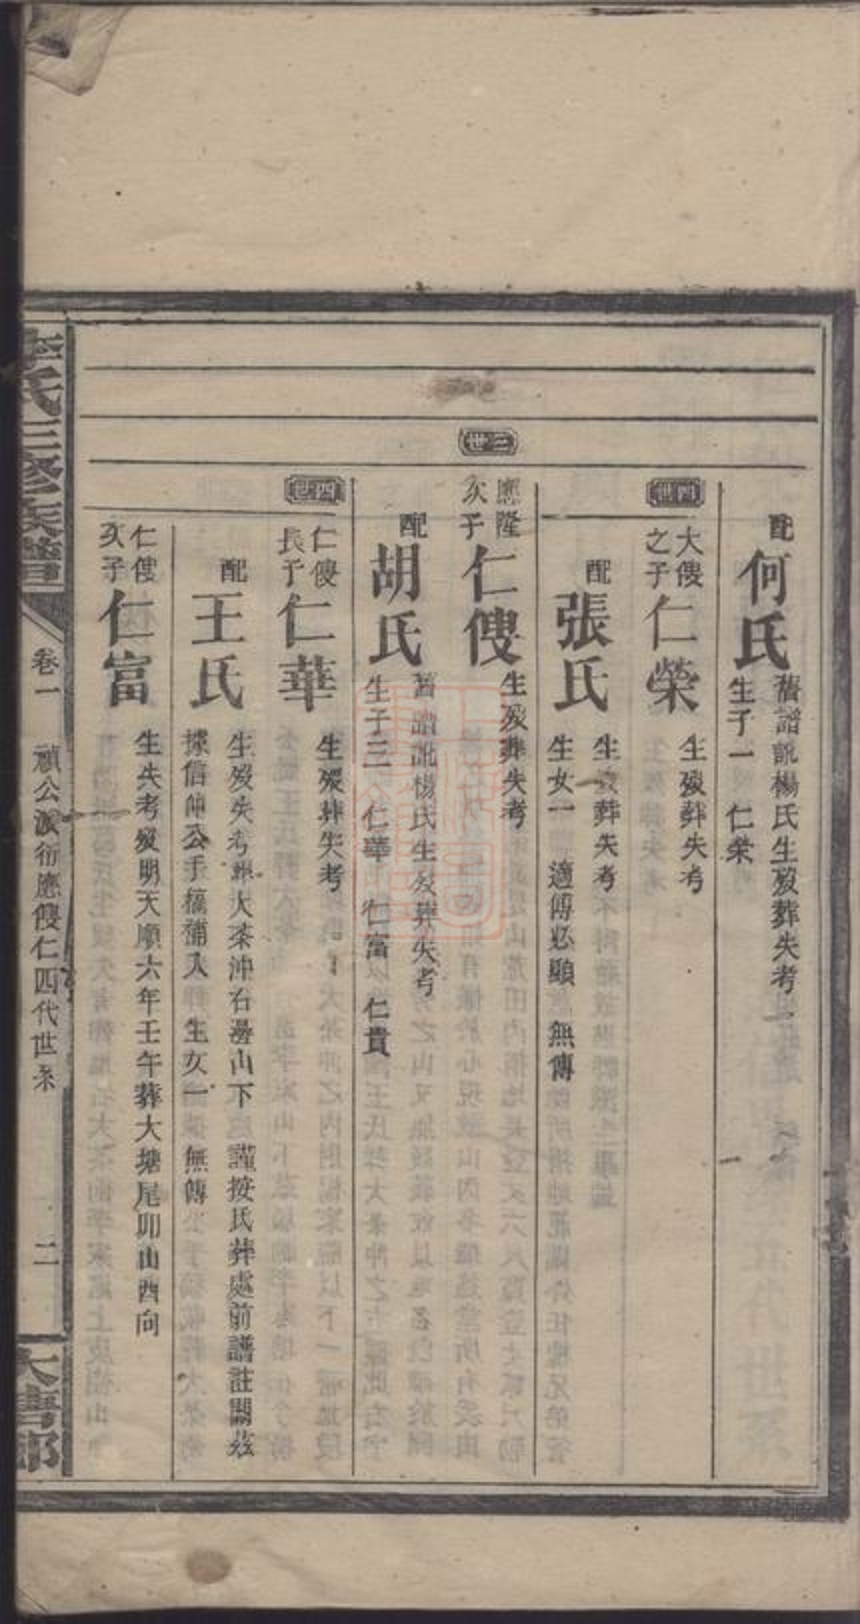 配
何氏
舊譜訛楊氏生歿葬失考
生子一 仁榮
四世
大傁
之子
仁榮
生歿葬失考
配
張氏
生歿葬失考
生女一 適傅必顯 無傳
三世
應隆
次子
仁傁
生歿葬失考
配
胡氏
舊譜訛楊氏生歿葬失考
生子三 仁華 仁富 仁貴
四世
仁傁
長子
仁華
生歿葬失考
配
王氏
生歿失考葬大茶沖右邊山下謹按氏葬處前譜註闕茲
據信 公手稿補入 生女一 無傳
仁傁
次子
仁富
生失考歿明天順六年壬午葬大塘尾卯山酉向
李氏三修族譜
卷一
禎公派衍應傁仁四代世系
二
大書部